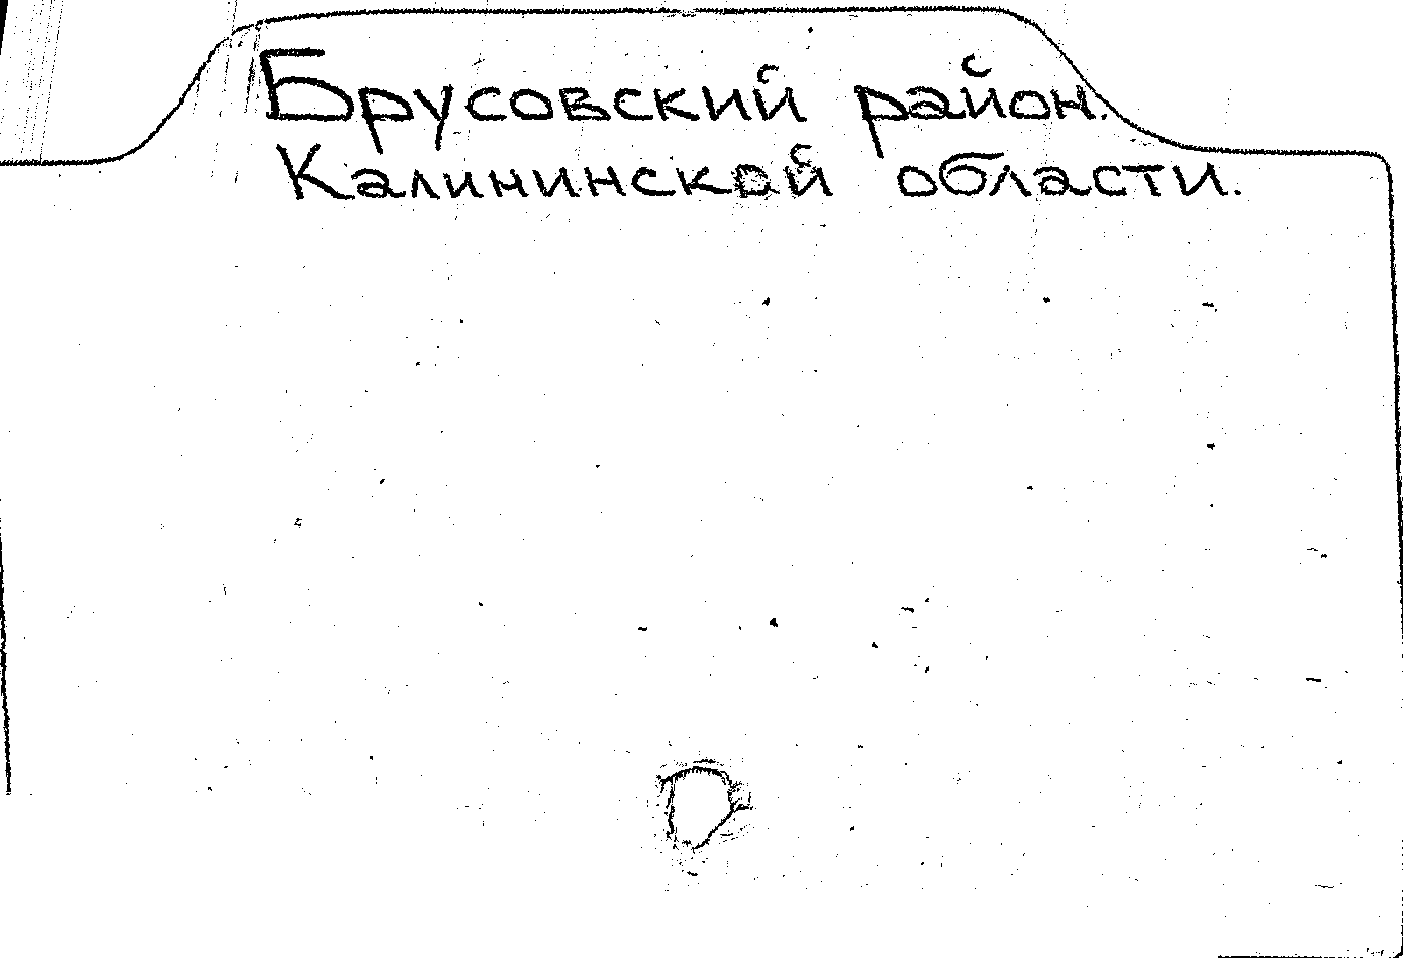 Брусовский район.
Калининской области.